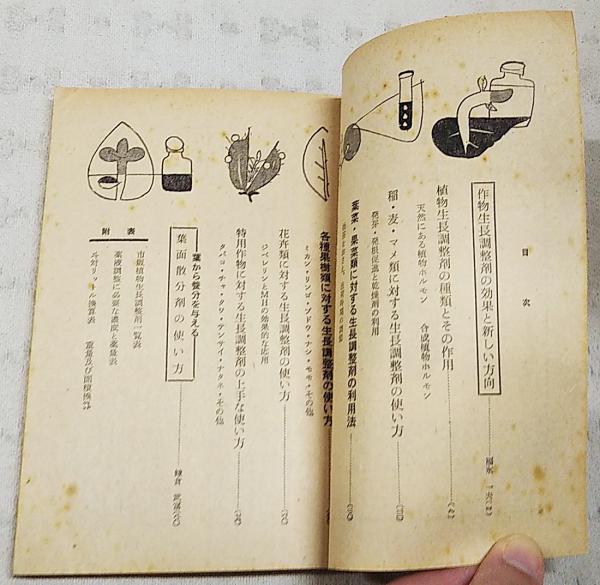 目次
作物生長調整剤の効果と新しい方向
植物生長調整剤の種類とその作用
天然にある植物ホルモン 合成植物ホルモン
稲・麦・マメ類に対する生長調整剤の使い方
発芽・発根促進と乾燥剤の利用
葉菜・果菜類に対する生長調整剤の利用法
各種果樹類に対する生長調整剤の使い方
ミカン・リンゴ・ブドウ・ナシ・モモ・その他
花卉類に対する生長調整剤の使い方
ジベレリンとMHの効果的な応用
特用作物に対する生長調整剤の上手な使い方
タバコ・チャ・クワ・テンサイ・ナタネ・その他
葉から養分を与える
葉面散分剤の使い方
附表
市販植物生長調整剤一覧表
薬液調整に必要な濃度と薬量表
斗対リットル換算表